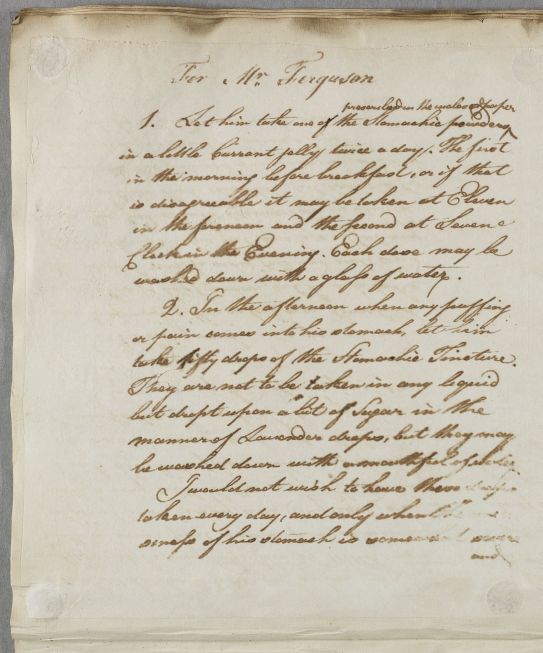 For Mr. Ferguson
prescribed in the inclosed paper
1. Let him take one of the Stomachic powders
in a little Currant jelly twice a day. The first
in the morning before breakfast, or if that
is disagreeable it may be taken at Eleven
in the forenoon and the second at Seven o
Clock in the Evening. Each dose may be
washed down with a glass of water.
2. In the afternoon when any puffing
or pain comes into his stomach, let him
take fifty drops of the Stomachic Tincture.
They are not to be taken in any liquid
but dropt upon a bit of Sugar in the
manner of Lavender drops, but they may
be washed down with a mouthful of water.
I would not wish to have them
taken every day, and only when
of his stomach is
and